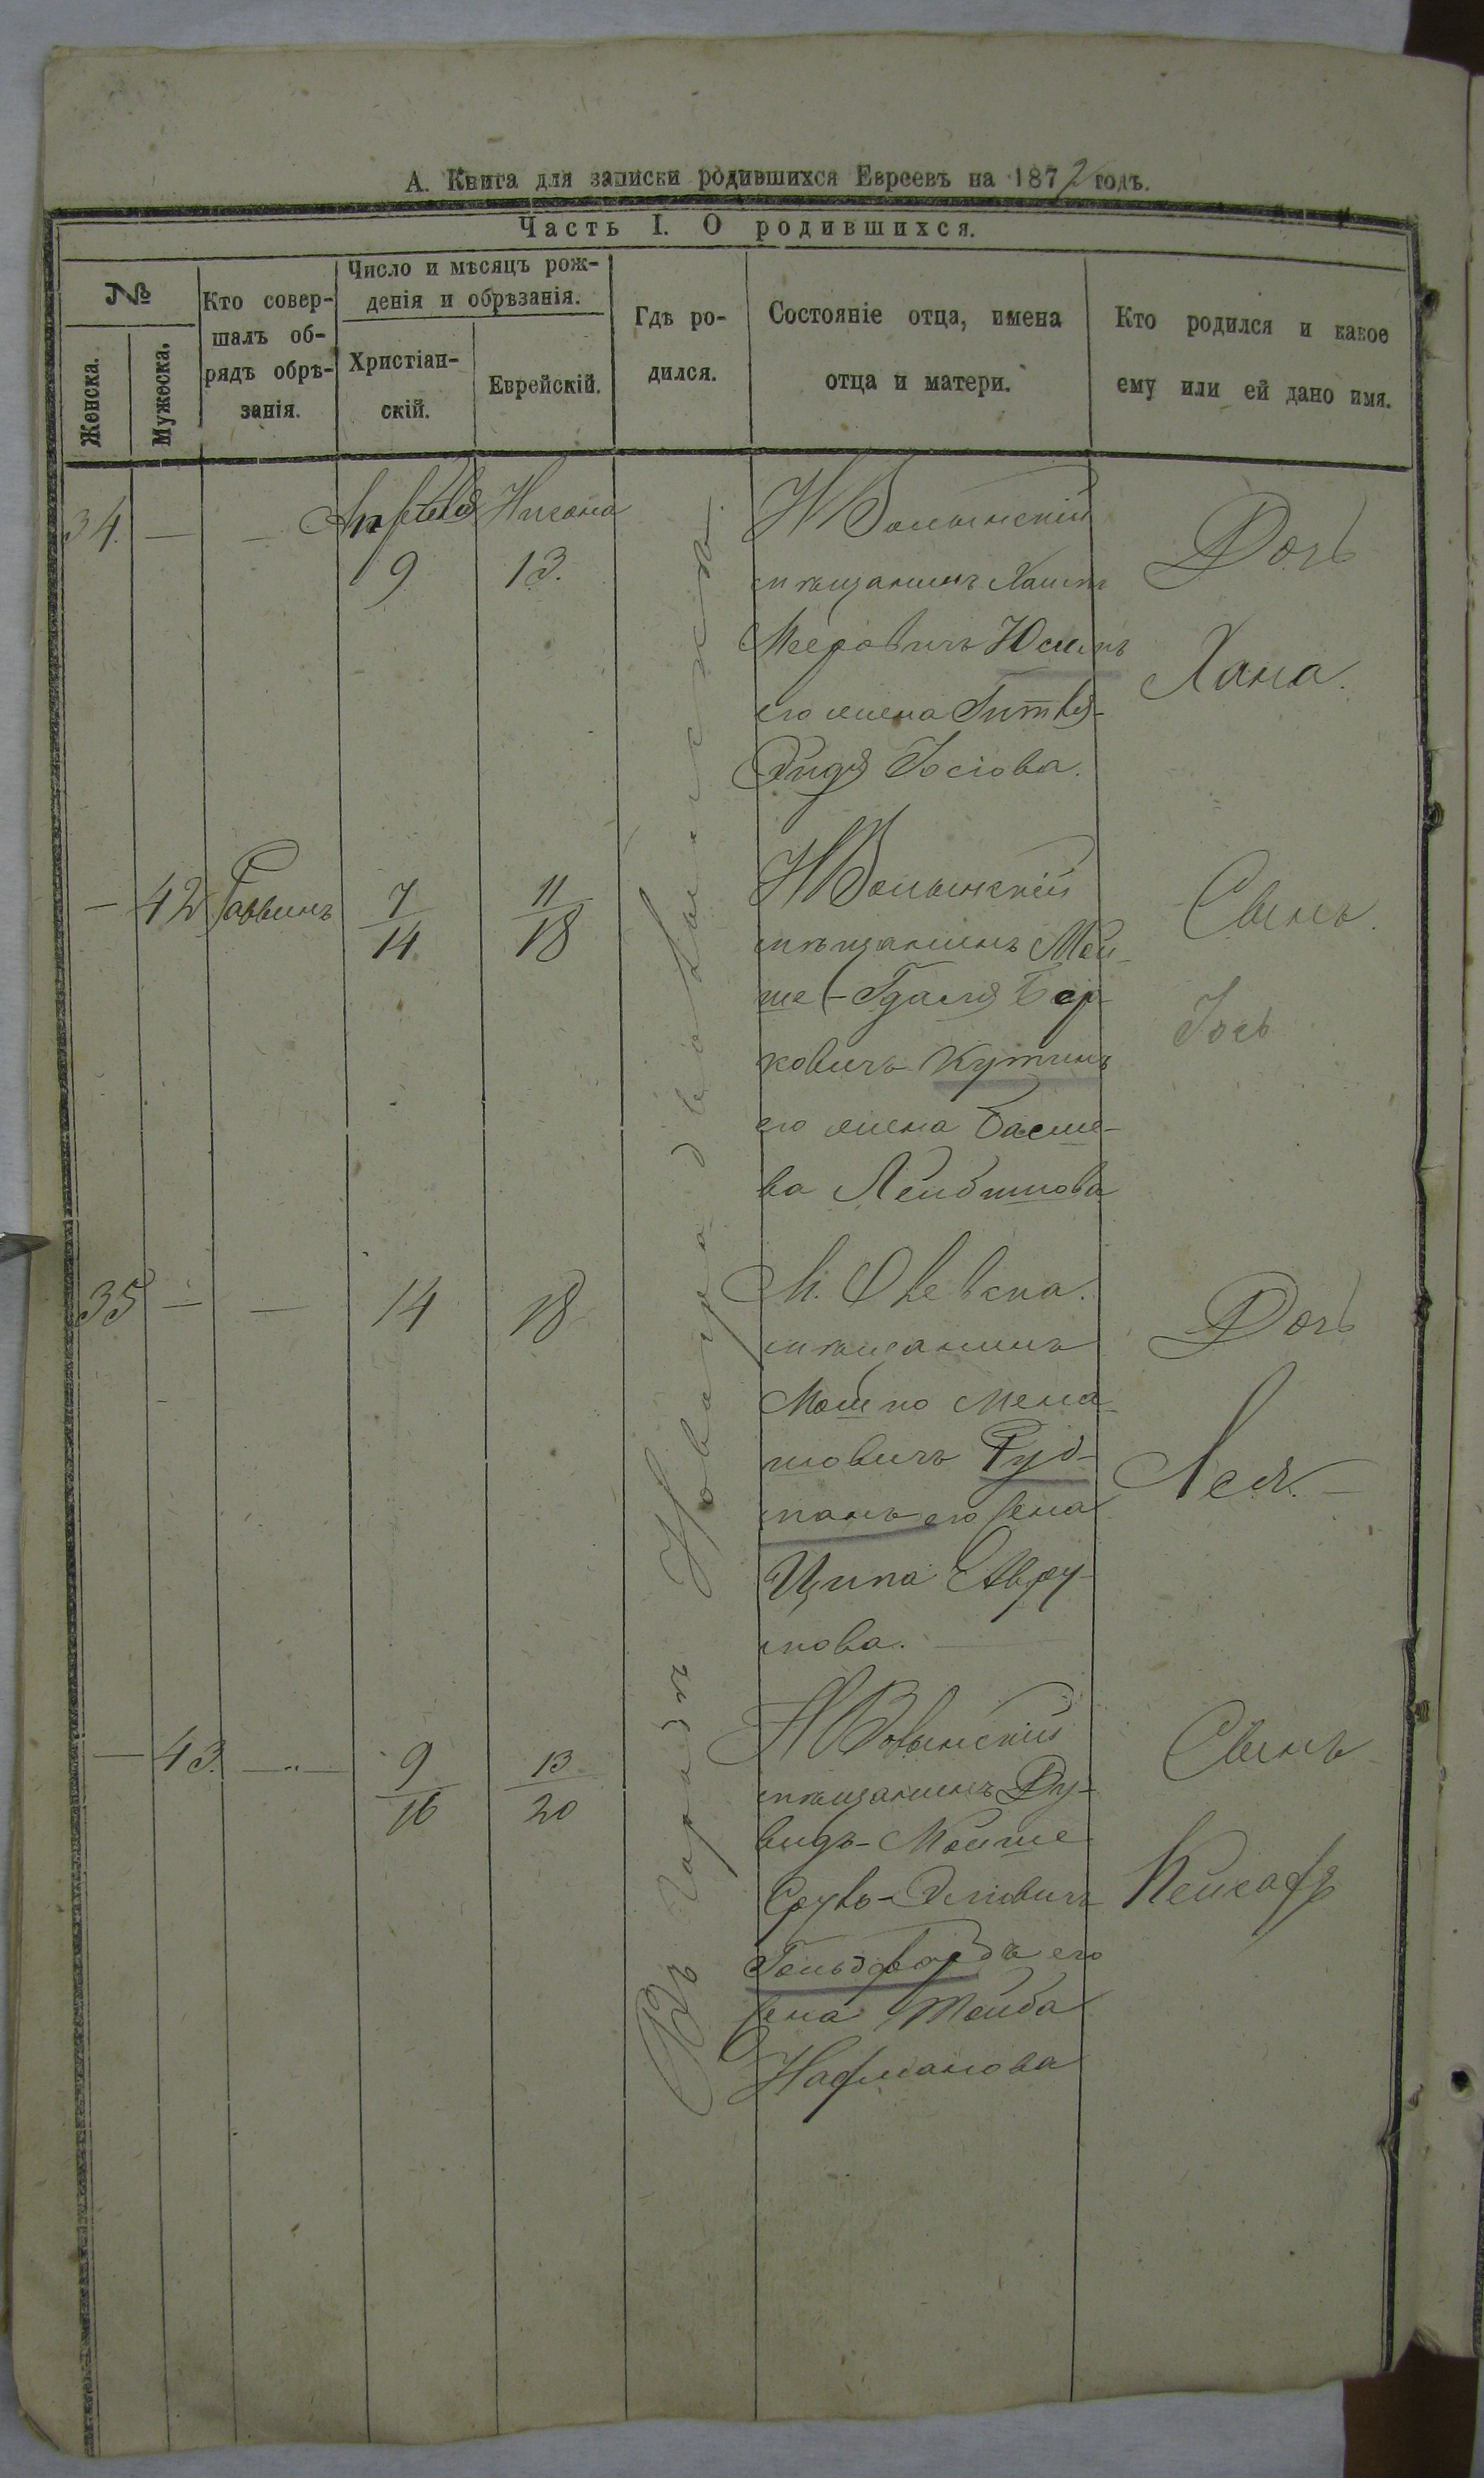 А. Книга для записки родившихся Евреевъ на 1872 годъ.
Часть I. О родившихся.
№
Женска.
Мужеска.
Кто совер-
шалъ об-
рядъ обрѣ-
занія.
Число и мѣсяцъ рож-
денія и обрѣзанія.
Христіан-
скій.
Еврейскій.
Гдѣ ро-
дился.
Состояніе отца, имена
отца и матери.
Кто родился и какое
ему или ей дано имя.
Въ городѣ Новоградволынскѣ.
34. — — Апрѣля Нисана
9 13.
НВолынскій
мѣщанинъ Хаимъ
Мееровичъ
его жена Гитля-
Эидя Іосіова.
Дочь
Хана.
— 42 Раввинъ
7/14 11/18
НВолынскій
мѣщанинъ Мой-
ше-Гдаля Бер-
ковичъ Кутикъ
его жена Басше-
ва Лейбишова
Сынъ.
Іось
35 — — 14 18
М. Олевска.
мѣщанинъ
Мошко Мена-
шовичъ Руд-
манъ его жена
Ципа Авру-
мова.
Дочь
Лея. —
— 43. —„—
9/16 13/20
НВолынскій
мѣщанинъ Ду-
видъ-Мойше
Сруль-Эліовичъ
Гольдфарбъ его
жена Тойба
Нафманова
Сынъ